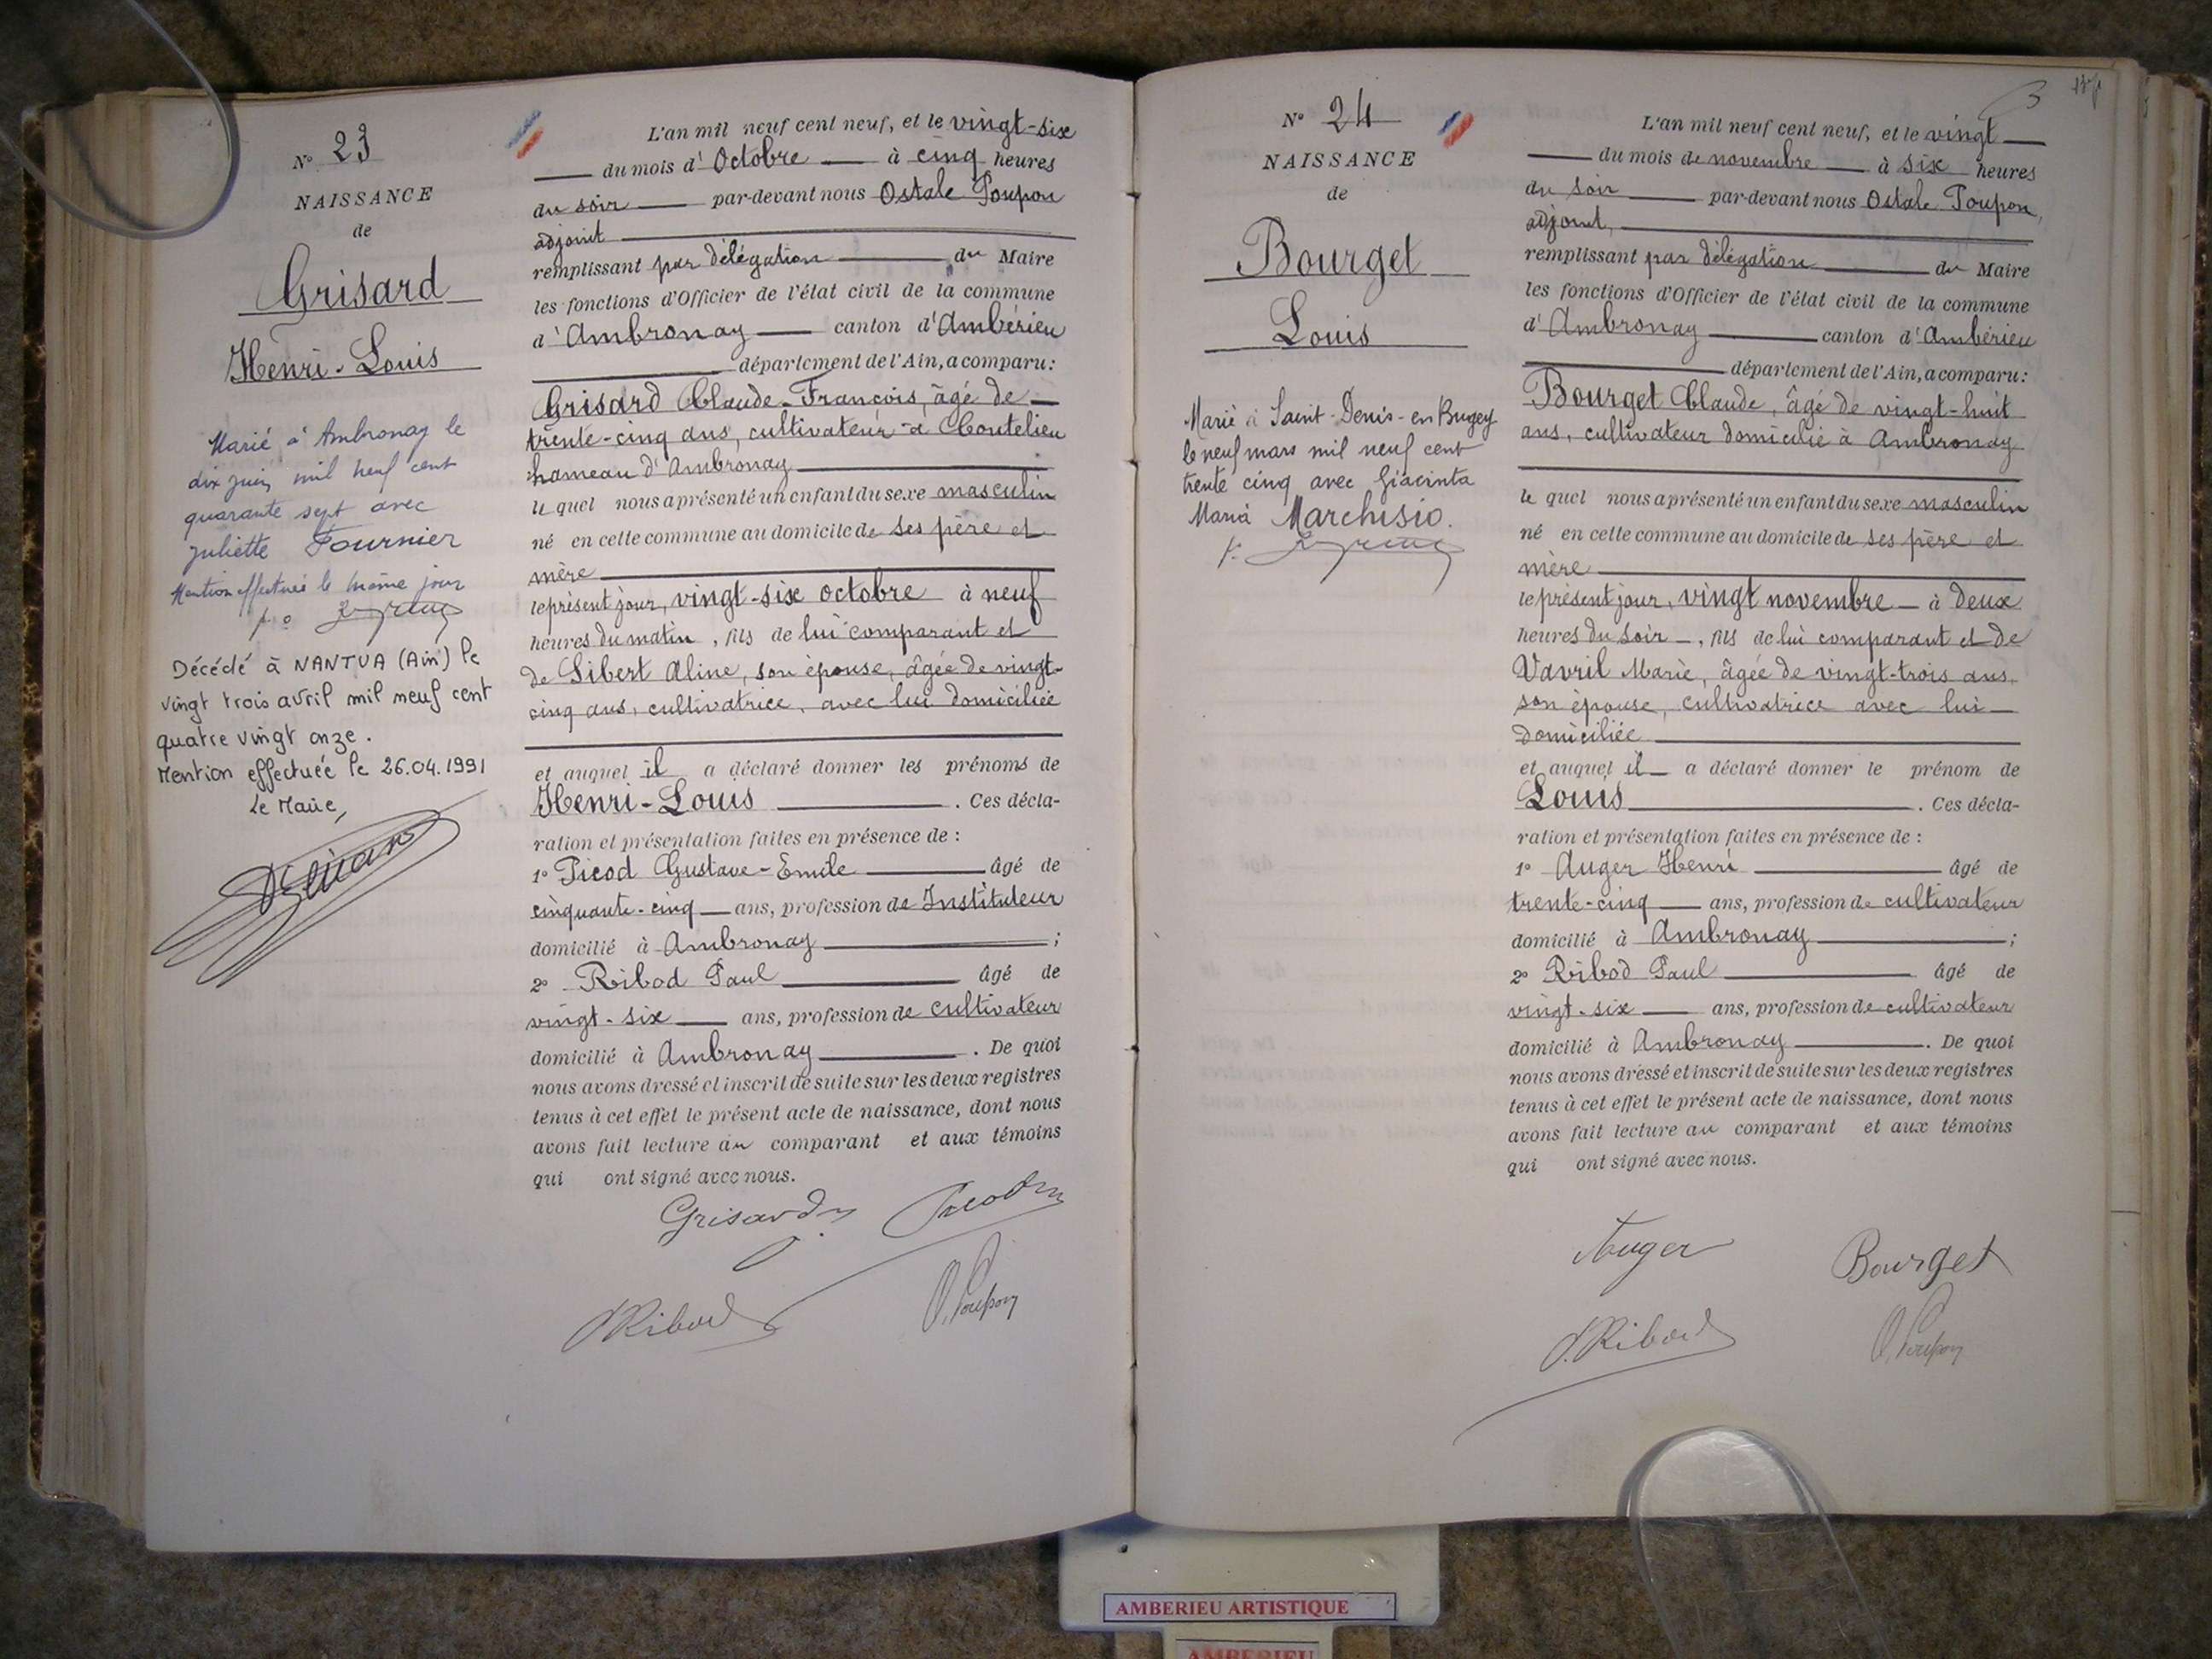 N° 23
NAISSANCE
de
Grisard
Henri-Louis
Marié à Ambronay le
dix juin mil neuf cent
quarante sept avec
Juliette Fournier
Mention effectuée le même jour
Décédé à NANTUA (Ain) le
vingt trois avril mil neuf cent
quatre vingt onze.
Mention effectuée le 26.04.1991
Le Maire,
L'an mil neuf cent neuf, et le vingt-six
du mois d'Octobre à cinq heures
du soir par-devant nous Ostale Poupon
adjoint
remplissant par délégation du Maire
les fonctions d'Officier de l'état civil de la commune
d'Ambronay canton d'Ambérieu
département de l'Ain, a comparu:
Grisard Claude-François, âgé de
trente-cinq ans, cultivateur à Coutelieu
hameau d'Ambronay
lequel nous a présenté un enfant du sexe masculin
né en cette commune au domicile de ses père et
mère
le présent jour, vingt-six octobre à neuf
heures du matin, fils de lui comparant et
de Libert Aline, son épouse, âgée de vingt-
cinq ans, cultivatrice, avec lui domiciliée
et auquel il a déclaré donner les prénoms de
Henri-Louis. Ces décla-
ration et présentation faites en présence de :
1° Picod Gustave-Émile âgé de
cinquante-cinq ans, profession de Instituteur
domicilié à Ambronay ;
2° Ribod Paul âgé de
vingt-six ans, profession de cultivateur
domicilié à Ambronay. De quoi
nous avons dressé et inscrit de suite sur les deux registres
tenus à cet effet le présent acte de naissance, dont nous
avons fait lecture au comparant et aux témoins
qui ont signé avec nous.
Grisard Picod
P. Ribod O. Poupon
N° 24
NAISSANCE
de
Bourget
Louis
Marié à Saint-Denis-en Bugey
le neuf mars mil neuf cent
trente cinq avec Giacinta
Maria Marchisio.
L'an mil neuf cent neuf, et le vingt
du mois de novembre à six heures
du soir par-devant nous Ostale Poupon,
adjoint,
remplissant par délégation du Maire
les fonctions d'Officier de l'état civil de la commune
d'Ambronay canton d'Ambérieu
département de l'Ain, a comparu:
Bourget Claude, âgé de vingt-huit
ans, cultivateur domicilié à Ambronay
lequel nous a présenté un enfant du sexe masculin
né en cette commune au domicile de ses père et
mère
le présent jour, vingt novembre à deux
heures du soir, fils de lui comparant et de
Vavril Marie, âgée de vingt-trois ans,
son épouse, cultivatrice avec lui
domiciliée
et auquel il a déclaré donner le prénom de
Louis. Ces décla-
ration et présentation faites en présence de :
1° Auger Henri âgé de
trente-cinq ans, profession de cultivateur
domicilié à Ambronay ;
2° Ribod Paul âgé de
vingt-six ans, profession de cultivateur
domicilié à Ambronay. De quoi
nous avons dressé et inscrit de suite sur les deux registres
tenus à cet effet le présent acte de naissance, dont nous
avons fait lecture au comparant et aux témoins
qui ont signé avec nous.
Auger Bourget
P. Ribod O. Poupon
AMBERIEU ARTISTIQUE
AMBERIEU